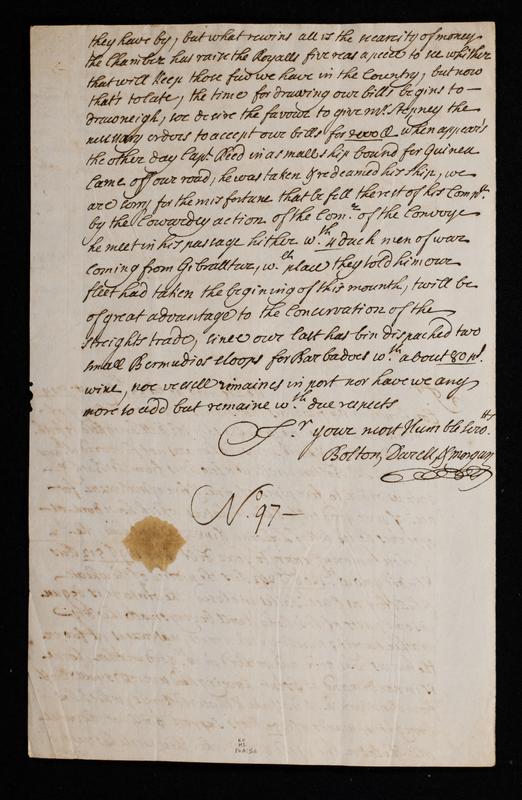 they have by, but what rewins all is the scarcity of money
the Chamber has raise the Royalls five reas a peece to see whither
that will keep those few we have in the Country, but now
that's to late, the time for drawing our bills begins to —
draw neigh, we desire the favour to give mr. Stepney the
nessary orders to accept our bills for when appear's
the other day Capt. Reed in a small ship bound for Guinea
Came of our road, he was taken & redeamed his ship, we
are sorry for the misfortune that be fell the rest of his Comp.
by the Cowardly action of the Com.r of the Convoye
he meet in his passage hither w.th 4 duch men of war
coming from Gibralltar, w.ch place they told him our
fleet had taken the begining of this mounth, twill be
of great advantage to the Concervation of the
streights trade, since our last has bin dispached two
small Bermudios sloops for Barbadoes w.th about 80 p.s
wine, noe vessell remaines in port nor have we any
more to add but remaine w.th due respects
S.r your most Humble Serv.ts
Bolton, Durell, & morgan
N.o 97 —
KU
MS
P6A:50